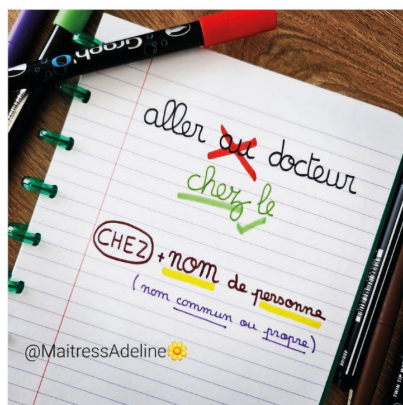 Graph'O
aller au docteur
chez le
CHEZ + nom de personne
(nom commun ou propre)
@MaitressAdeline🌼